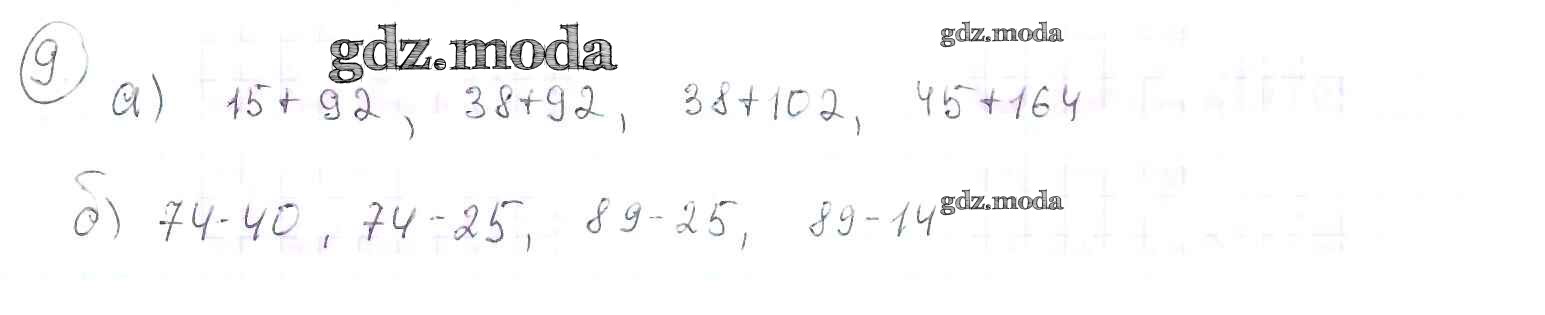 gdz.moda
gdz.moda
9
а) 15+92, 38+92, 38+102, 45+164
б) 74-40, 74-25, 89-25, 89-14
gdz.moda